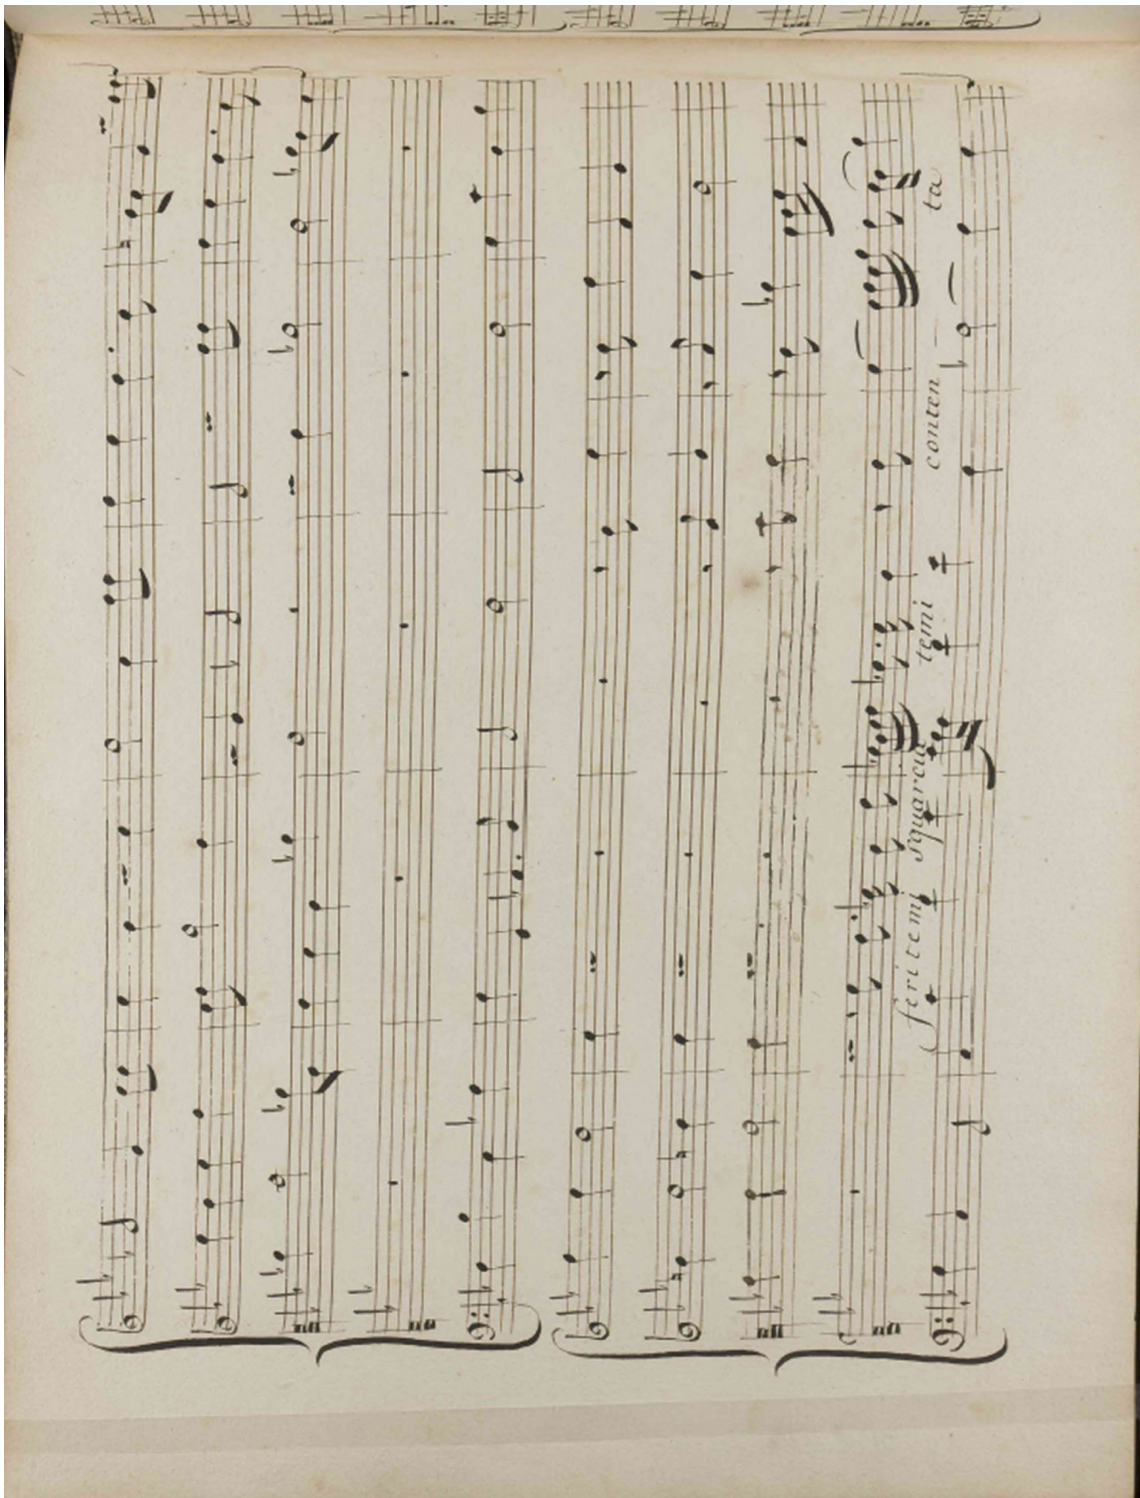 feritemi squarcia temi conten ta